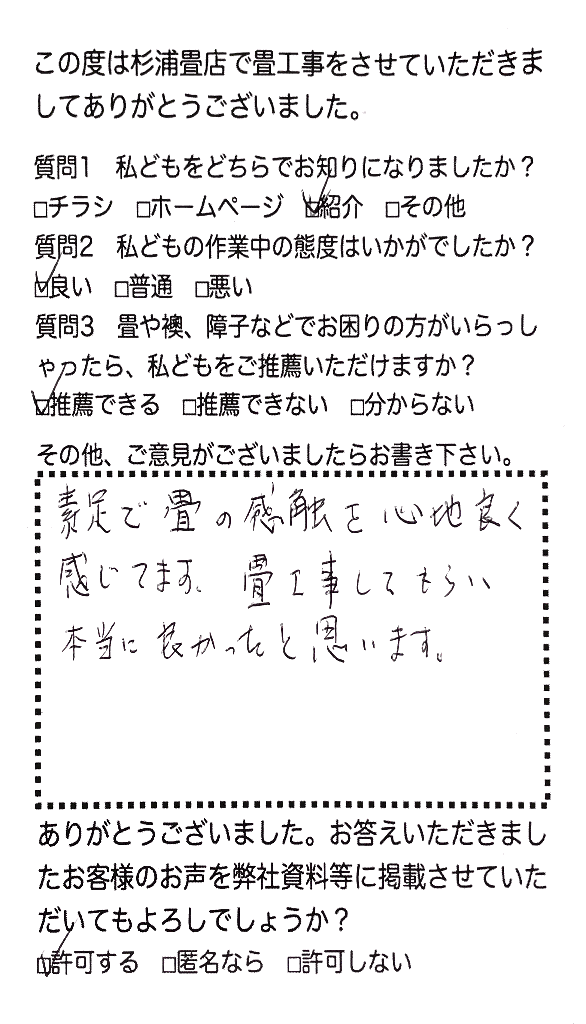 この度は杉浦畳店で畳工事をさせていただきま
してありがとうございました。
質問1　私どもをどちらでお知りになりましたか？
□チラシ　□ホームページ　☑紹介　□その他
質問2　私どもの作業中の態度はいかがでしたか？
☑良い　□普通　□悪い
質問3　畳や襖、障子などでお困りの方がいらっし
ゃったら、私どもをご推薦いただけますか？
☑推薦できる　□推薦できない　□分からない
その他、ご意見がございましたらお書き下さい。
素足で畳の感触を心地良く
感じてます。畳工事してもらい
本当に良かったと思います。
ありがとうございました。お答えいただきまし
たお客様のお声を弊社資料等に掲載させていた
だいてもよろしでしょうか？
☑許可する　□匿名なら　□許可しない